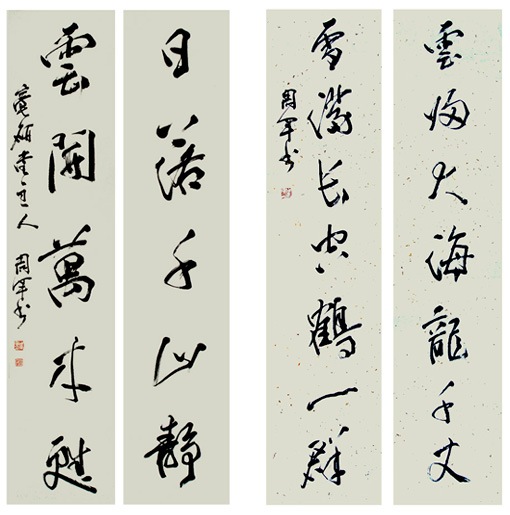 雲歸大海龍千丈
雪滿長空鶴一群
周軍書
日落千山靜
雲開萬木甦
硯堂主人 周軍書